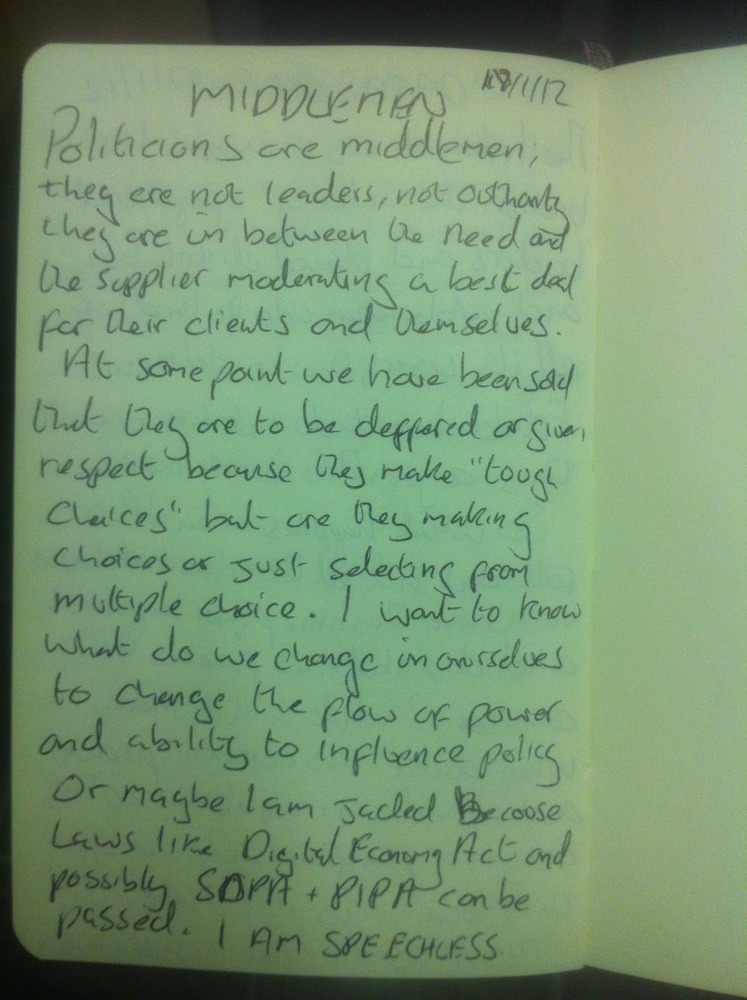 MIDDLEMEN 18/1/12
Politicians are middlemen,
they are not leaders, not authority
they are in between the need and
the supplier moderating a best deal
for their clients and themselves.
At some point we have been sold
that they are to be deffered or given
respect because they make "tough
Choices" but are they making
choices or just selecting from
multiple choice. I want to know
what do we change in ourselves
to change the flow of power
and ability to influence policy
Or maybe I am jaded Becoose
Laws like Digital Economy Act and
possibly SOPA + PIPA can be
passed. I AM SPEECHLESS